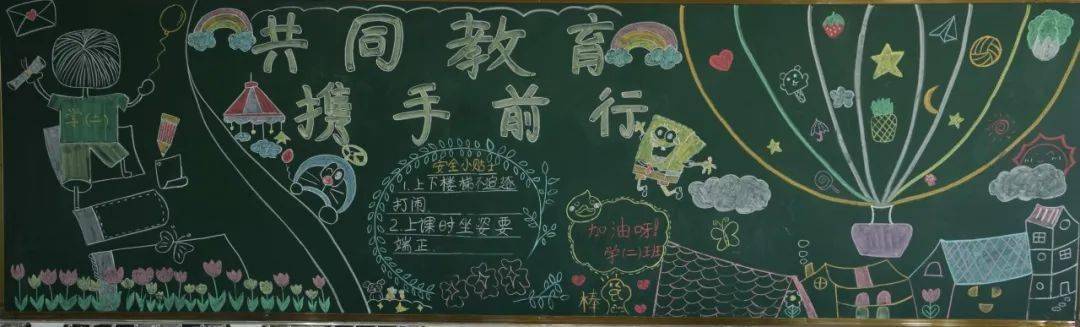 共同教育
携手前行
学(二)
安全小贴士
1.上下楼梯不追逐
打闹
2.上课时坐姿要
端正
加油呀!
学(二)班
棒